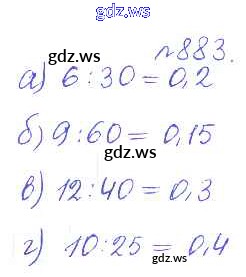 gdz.ws
gdz.ws
№883.
а) 6:30=0,2
б) 9:60=0,15
gdz.ws
в) 12:40=0,3
г) 10:25=0,4
gdz.ws